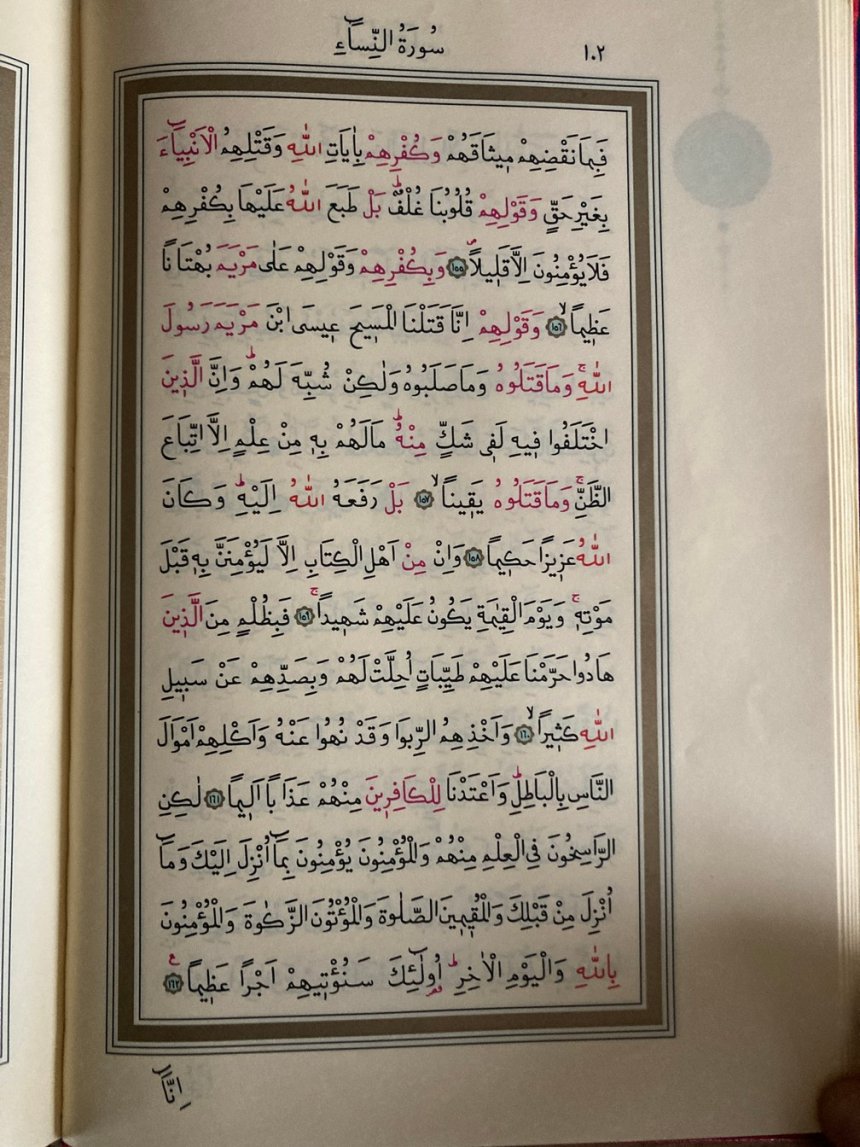 سُورَةُ النِّسَٓاءِ
١٠٢
فَبِمَا نَقْضِهِمْ مٖيثَاقَهُمْ وَكُفْرِهِمْ بِاٰيَاتِ اللّٰهِ وَقَتْلِهِمُ الْاَنْبِيَٓاءَ
بِغَيْرِ حَقٍّ وَقَوْلِهِمْ قُلُوبُنَا غُلْفٌؕ بَلْ طَبَعَ اللّٰهُ عَلَيْهَا بِكُفْرِهِمْ
فَلَا يُؤْمِنُونَ اِلَّا قَلٖيلاًࣕ ١٥٥ وَبِكُفْرِهِمْ وَقَوْلِهِمْ عَلٰى مَرْيَمَ بُهْتَاناً
عَظٖيماًۙ ١٥٦ وَقَوْلِهِمْ اِنَّا قَتَلْنَا الْمَسٖيحَ عٖيسَى ابْنَ مَرْيَمَ رَسُولَ
اللّٰهِۚ وَمَا قَتَلُوهُ وَمَا صَلَبُوهُ وَلٰكِنْ شُبِّهَ لَهُمْؕ وَاِنَّ الَّذٖينَ
اخْتَلَفُوا فٖيهِ لَفٖي شَكٍّ مِنْهُؕ مَا لَهُمْ بِهٖ مِنْ عِلْمٍ اِلَّا اتِّبَاعَ
الظَّنِّۚ وَمَا قَتَلُوهُ يَقٖيناًۙ ١٥٧ بَلْ رَفَعَهُ اللّٰهُ اِلَيْهِؕ وَكَانَ
اللّٰهُ عَزٖيزاً حَكٖيماً ١٥٨ وَاِنْ مِنْ اَهْلِ الْكِتَابِ اِلَّا لَيُؤْمِنَنَّ بِهٖ قَبْلَ
مَوْتِهٖۚ وَيَوْمَ الْقِيٰمَةِ يَكُونُ عَلَيْهِمْ شَهٖيداًۚ ١٥٩ فَبِظُلْمٍ مِنَ الَّذٖينَ
هَادُوا حَرَّمْنَا عَلَيْهِمْ طَيِّبَاتٍ اُحِلَّتْ لَهُمْ وَبِصَدِّهِمْ عَنْ سَبٖيلِ
اللّٰهِ كَثٖيراًۙ ١٦٠ وَاَخْذِهِمُ الرِّبٰوا وَقَدْ نُهُوا عَنْهُ وَاَكْلِهِمْ اَمْوَالَ
النَّاسِ بِالْبَاطِلِؕ وَاَعْتَدْنَا لِلْكَافِرٖينَ مِنْهُمْ عَذَاباً اَلٖيماً ١٦١ لٰكِنِ
الرَّاسِخُونَ فِي الْعِلْمِ مِنْهُمْ وَالْمُؤْمِنُونَ يُؤْمِنُونَ بِمَٓا اُنْزِلَ اِلَيْكَ وَمَٓا
اُنْزِلَ مِنْ قَبْلِكَ وَالْمُقٖيمٖينَ الصَّلٰوةَ وَالْمُؤْتُونَ الزَّكٰوةَ وَالْمُؤْمِنُونَ
بِاللّٰهِ وَالْيَوْمِ الْاٰخِرِؕ اُو۬لٰٓئِكَ سَنُؤْتٖيهِمْ اَجْراً عَظٖيماً ١٦٢ ع
اِنَّٓا